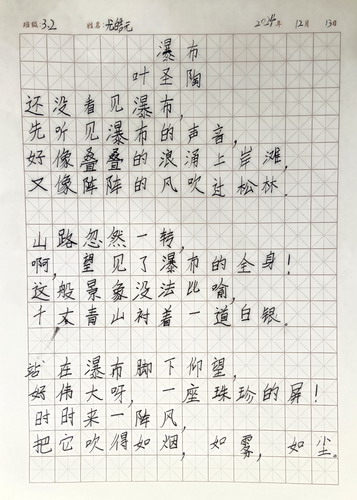 班级:3.2 姓名:尤皓元 2024年 12月 13日
瀑布
叶圣陶
还没看见瀑布,
先听见瀑布的声音,
好像叠叠的浪涌上岸滩,
又像阵阵的风吹过松林.
山路忽然一转,
啊,望见了瀑布的全身!
这般景象没法比喻,
千丈青山衬着一道白银.
站在瀑布脚下仰望,
好伟大呀,一座珠珍的屏!
时时来一阵风,
把它吹得如烟,如雾,如尘.